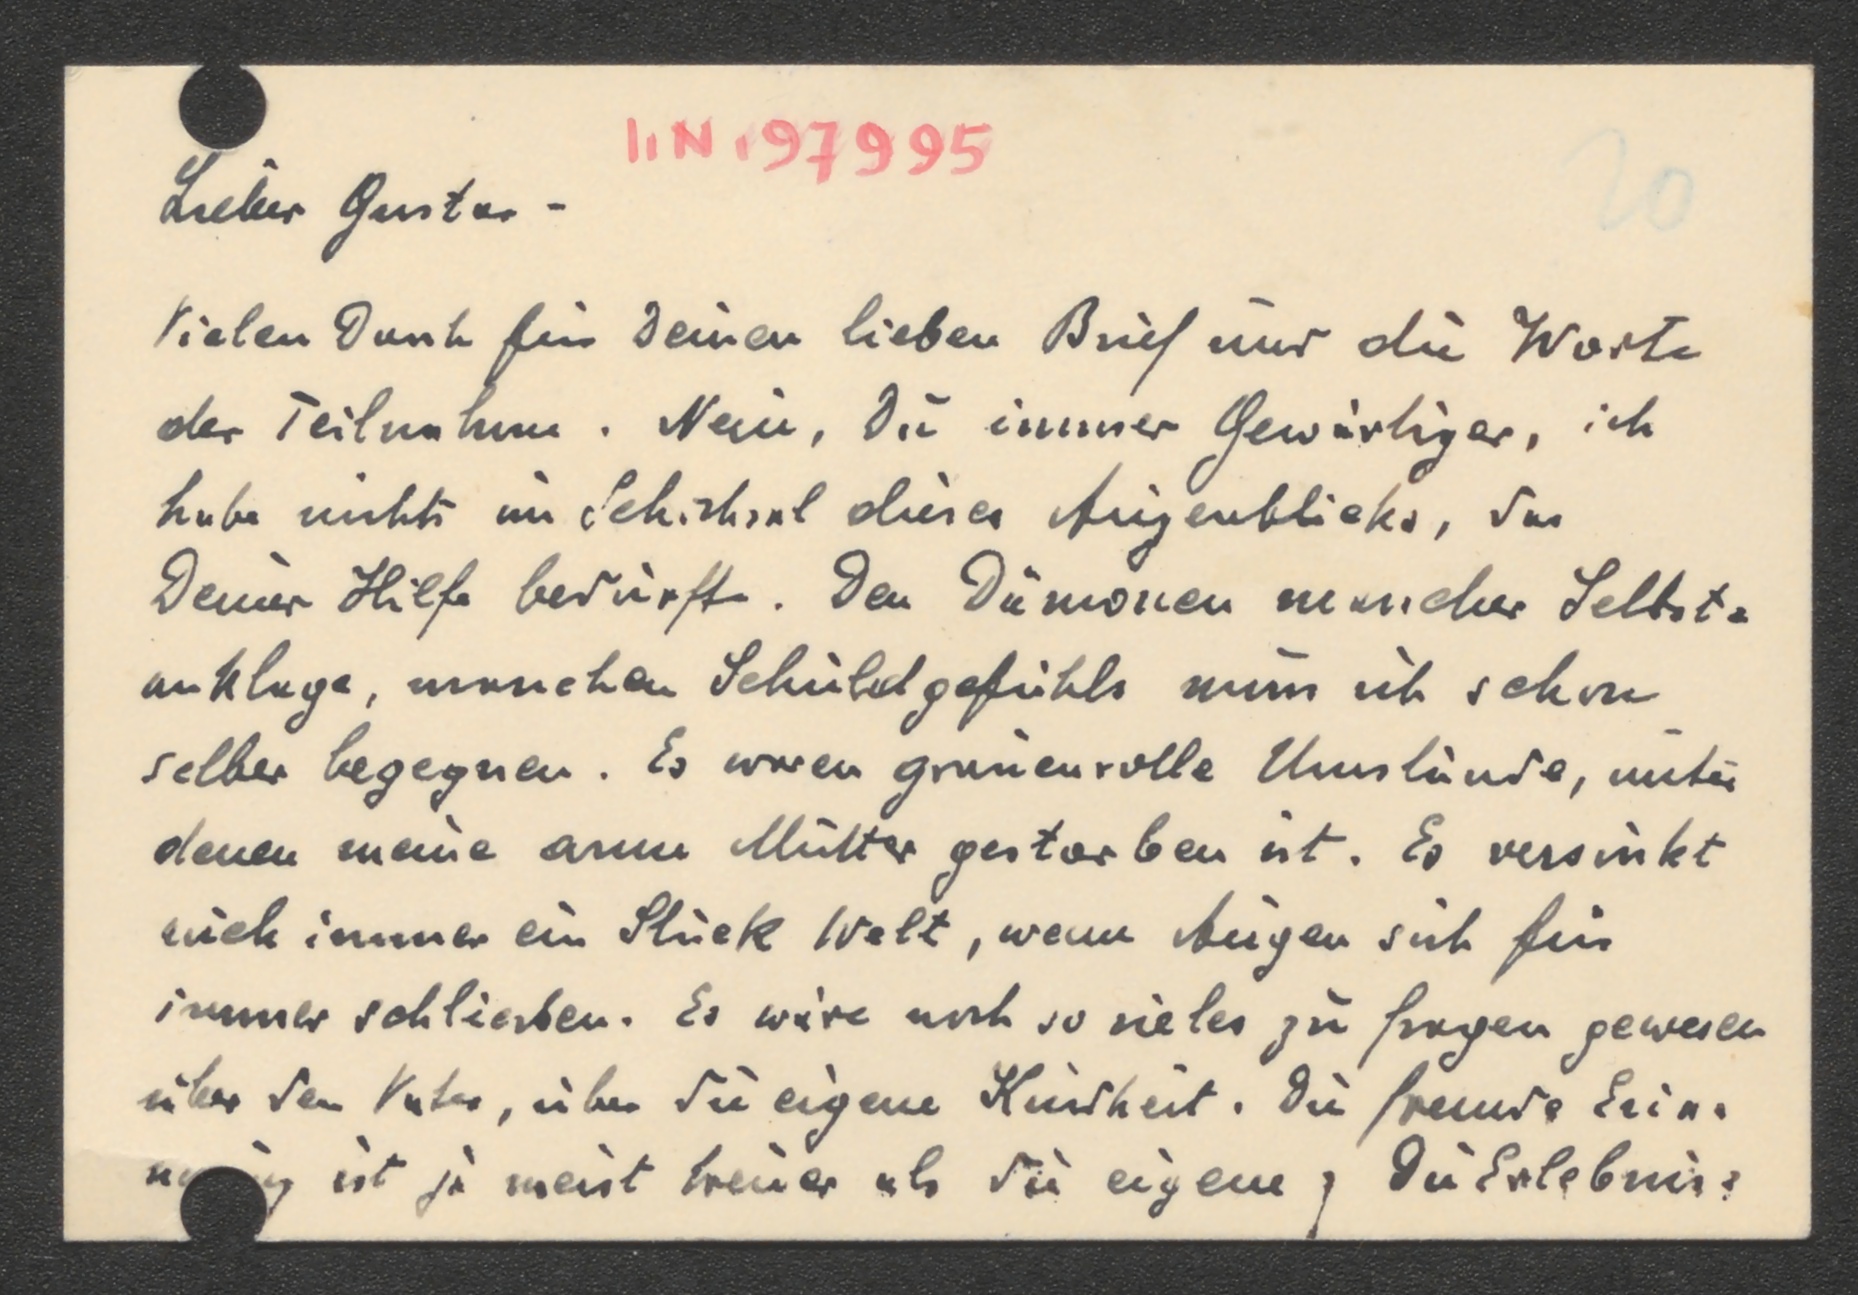 I.N 197995
20
Lieber Gustav -
Vielen Dank für Deinen lieben Brief und die Worte
der Teilnahme. Nein, Du immer Gewärtiger, ich
habe nichts im Schicksal dieses Augenblicks, das
Deiner Hilfe bedürfte. Den Dämonen mancher Selbst-
anklage, manchen Schuldgefühls muss ich schon
selber begegnen. Es waren grauenvolle Umstände, unter
denen meine arme Mutter gestorben ist. Es versinkt
auch immer ein Stück Welt, wenn Augen sich für
immer schliessen. Es wäre noch so vieles zu fragen gewesen
über den Vater, über die eigene Kindheit. Die fremde Erin-
nerung ist ja meist treuer als die eigene; Du Erlebnis-